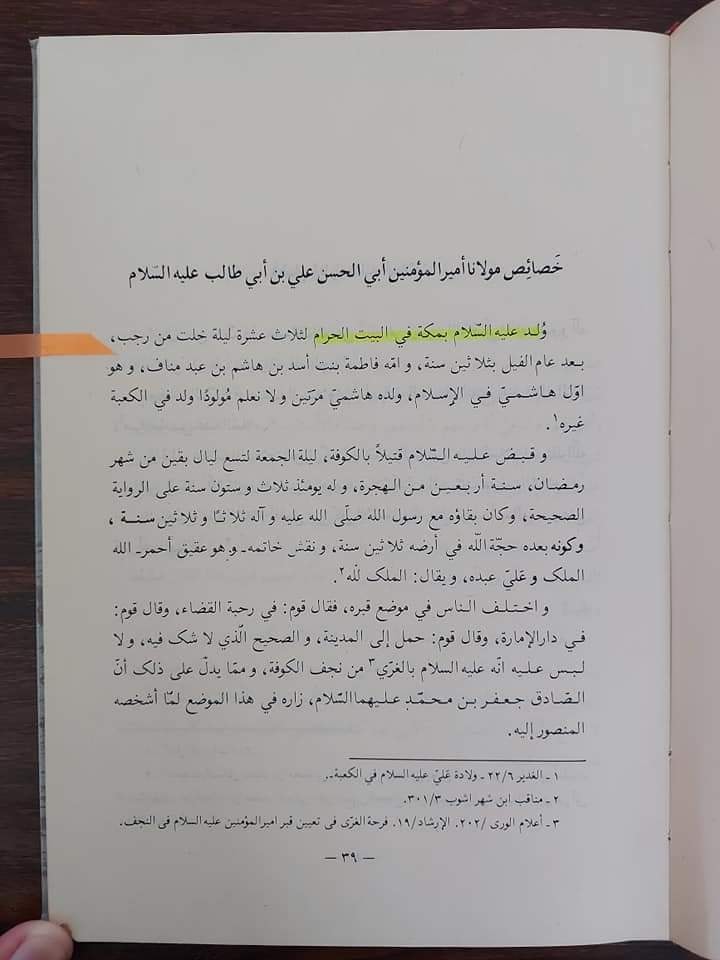 خَصائِص مولانا أميرالمؤمنين أبي الحسن علي بن أبي طالب عليه السّلام
وُلـد عليه السّلام بمكة في البيت الحرام لثلاث عشرة ليلة خلت من رجب،
بعد عام الفيل بثلاثين سنة، و امّه فاطمة بنت أسد بن هاشم بن عبد مناف، و هو
اوّل هاشميّ في الإسلام، ولده هاشميّ مرّتين و لا نعلم مُولودًا ولد في الكعبة
غيره١.
و قبض عليه السّلام قتيلاً بالكوفة، ليلة الجمعة لتسع ليال بقين من شهر
رمضان، سنة أربعين من الهجرة، و له يومئذ ثلاث و ستون سنة على الرواية
الصحيحة، وكان بقاؤه مع رسول الله صلّى الله عليه و آله ثلاثًا و ثلاثين سنة،
وكونه بعده حجّة اللّه في أرضه ثلاثين سنة، و نقش خاتمه ـ و هو عقيق أحمر ـ الله
الملك و عَليّ عبده، و يقال: الملك للّه٢.
و اختلف الناس في موضع قبره، فقال قوم: في رحبة القضاء، وقال قوم:
في دارالإمارة، وقال قوم: حمل إلى المدينة، و الصحيح الّذي لا شك فيه، و لا
لبس عليه انّه عليه السلام بالغَري٣ من نجف الكوفة، و ممّا يدلّ على ذلك أنّ
الصّادق جعفر بن محمّد عليهما السّلام، زاره في هذا الموضع لمّا أشخصه
المنصور إليه.
١ ـ الغدير ٦/٢٢ ـ ولادة عَليّ عليه السلام في الكعبة ـ.
٢ ـ مناقب ابن شهر اشوب ٣/٣٠١.
٣ ـ أعلام الورى /٢٠٢. الإرشاد/١٩. فرحة الغرّى فى تعيين قبر اميرالمؤمنين عليه السلام فى النجف.
— ٣٩ —